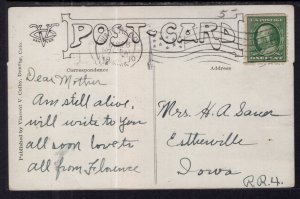 5-
POST-CARD
Correspondence
Address
Published by Vincent V. Colby, Denver, Colo.
Dear Mother
Am still alive,
will write to you
all soon love to
all from Florence
Mrs. H A Saver
Estherville
Iowa
R.R.4.